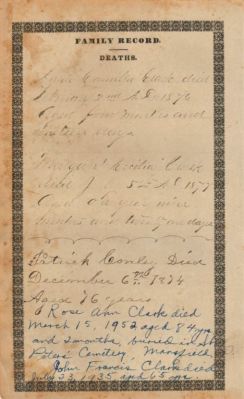 FAMILY RECORD.
DEATHS.
Clark died
2nd A.D 1876
Aged four months and
days
Margaret Cecilia Clark
died 5 A.D 1877
Aged one year nine
months and twenty one days
Patrick Conley Died
December 6 1874
Aged 76 years
Rose Ann Clark died
March 15, 1952 aged 84 yrs
and 2 months, buried in St
Peters Cemetery, Mansfield
John Francis Clark died
July 23, 1935 aged 65 yrs